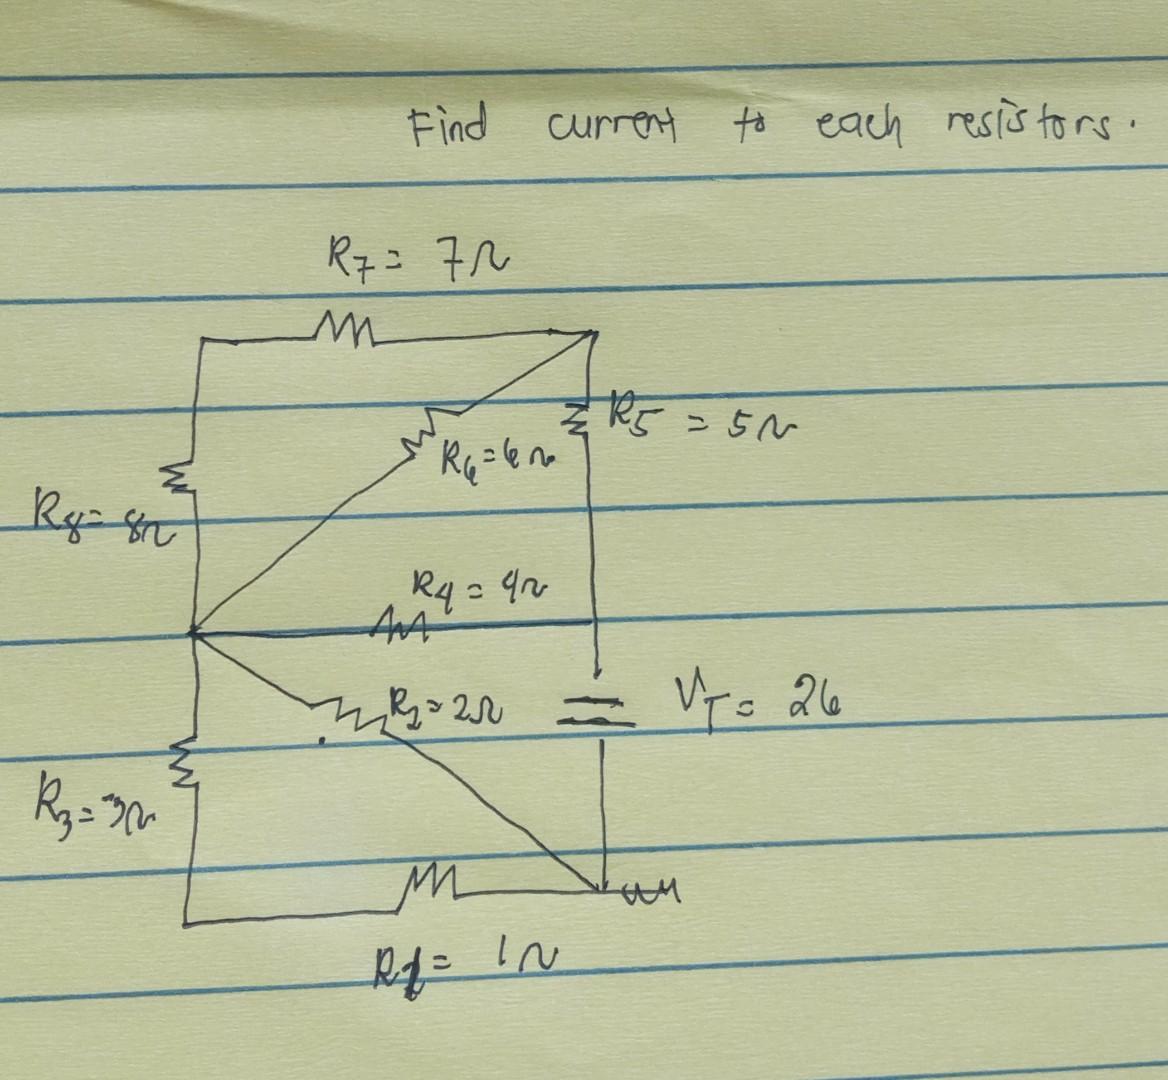 Find current to each resistors.
R7 = 7Ω
R5 = 5Ω
R6 = 6Ω
R8 = 8Ω
R4 = 4Ω
R2 = 2Ω
VT = 26
R3 = 3Ω
R1 = 1Ω